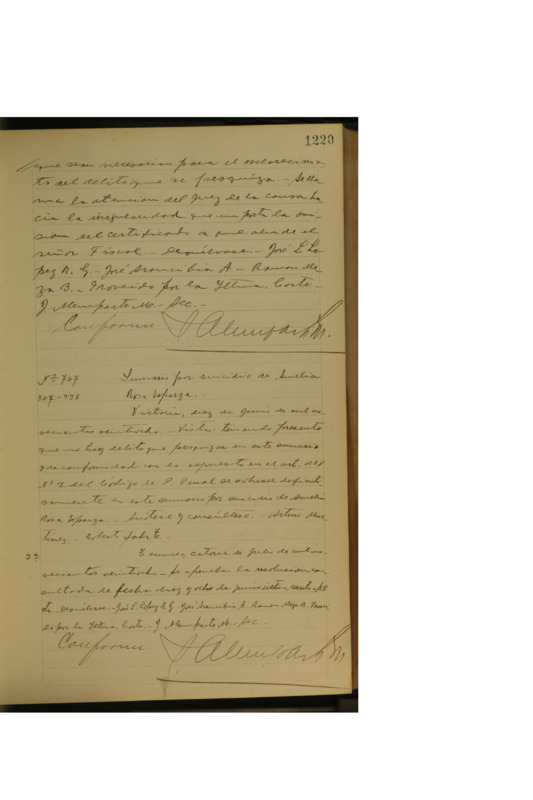 1220
que sean necesarias para el esclarecimien
to del delito que se pesquiza. - Se lla
ma la atencion del Juez de la causa ha
cia la irregularidad que importa la omi
sion del certificado a que alude el
señor Fiscal. - Devuélvase. - José L. Lo
pez R. G. - José Arancibia A - Ramon Me
za B. - Proveido por la Iltma. Corte -
J. Alemparte M. - Sec. -
Conforme J. Alemparte M.
Nº 747 Sumario por suicidio de Amelia
907-928 Rosa Soparza. -
Victoria, diez de Junio de mil no
vecientos veintiocho. - Vistos: teniendo presente
que no hay delito que pesquizar en este sumario
y de conformidad con lo espuesto en el art.
Nº 2 del Código de P. Penal se sobresee definiti
vamente en este sumario por suicidio de Amelia
Rosa Soparza. - Anótese y consúltese. - Arturo Mar
tinez. - Roberto
Temuco, catorce de Julio de mil no
vecientos veintiocho. - Se aprueba la resolucion con
sultada de fecha diez y ocho de junio último, escrita a fs
Devuélvase. - José L. López R. G. José Arancibia A. Ramon Meza B. Provei
do por la Iltma Corte. - J. Alemparte M. - Sec. -
Conforme J. Alemparte M